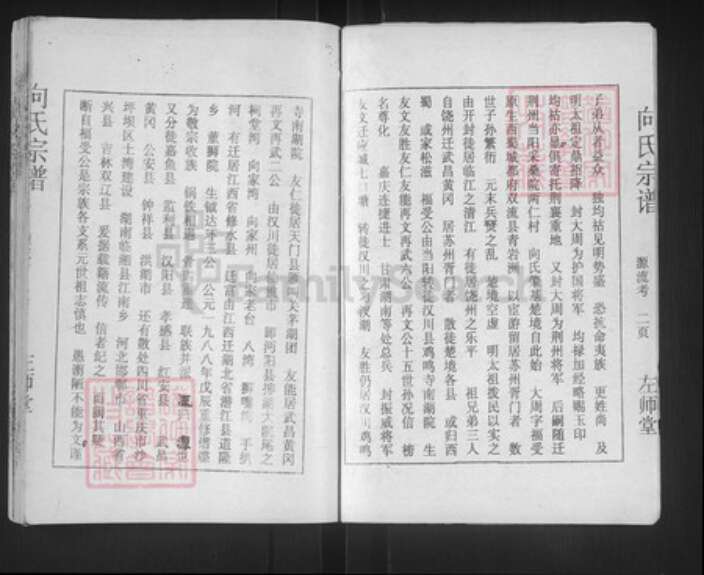 向氏宗谱
源流考
二页
左师堂
子弟从者益众 独均祜见明势盛 恐抗命夷族 更姓尚 及
明太祖定鼎招降 封大周为护国将军 均禄加经略赐玉印
均祜亦显俱寄托荆襄重地 又封大周为荆州将军 后嗣随迁
荆州当阳 两仁村 向氏肇基楚境自此始 大周字福受
原生西蜀城都府双流县青岩洲 以宦游留居苏州胥门者 数
世子孙繁衍 元末兵燹之乱 楚境空虚 明太祖拨民以实之
由开封徒居临江之清江 有徒居饶州之乐平 祖兄弟三人
自饶州迁武昌黄冈 居苏州胥 散徒楚境各县 或归西
蜀 或家松滋 福受公由当阳转徒汉川县鸡鸣寺南湖院 生
友文友胜友仁友能再文再武六公 再文公十五世孙况信 榜
名尊化 嘉庆连捷进士 甘肃湖南等处总兵 封振威将军
友文迁应城七 塘 转徒汉川 汊湖 友胜仍居汉川 鸡鸣
寺南湖院 友仁徒居天门县 大茅湖团 友能居武昌黄冈
再文再武二公 由汉川徒居仙 镇 即沔阳县排湖大 尾之
祠堂湾 向家湾 向家州 向 老台 八湾 狮嘴 手扒
河 有迁居江西省修水县 迁 由江西迁湖北省潜江县道隆
乡 董狮院 生铖达环三公 公元一九八八年戊辰重修谱牒
为敬宗收族 锅铁相遇 联族并派
又分徒嘉鱼县 监利县 汉阳县 孝感县 红安县 武昌
黄冈 公安县 钟祥县 洪湖市 还有散处四川省重庆市沙
坪坝区土湾建设 湖南临湘县江南乡 河北邯郸市 山西省
兴县 吉林双辽县 爰据载籍流传 信者纪之 阙其疑
断自福受公是宗族各支系元世祖志慎也 愚谫陋不能为文谨
向氏宗谱
左师堂
FamilySearch